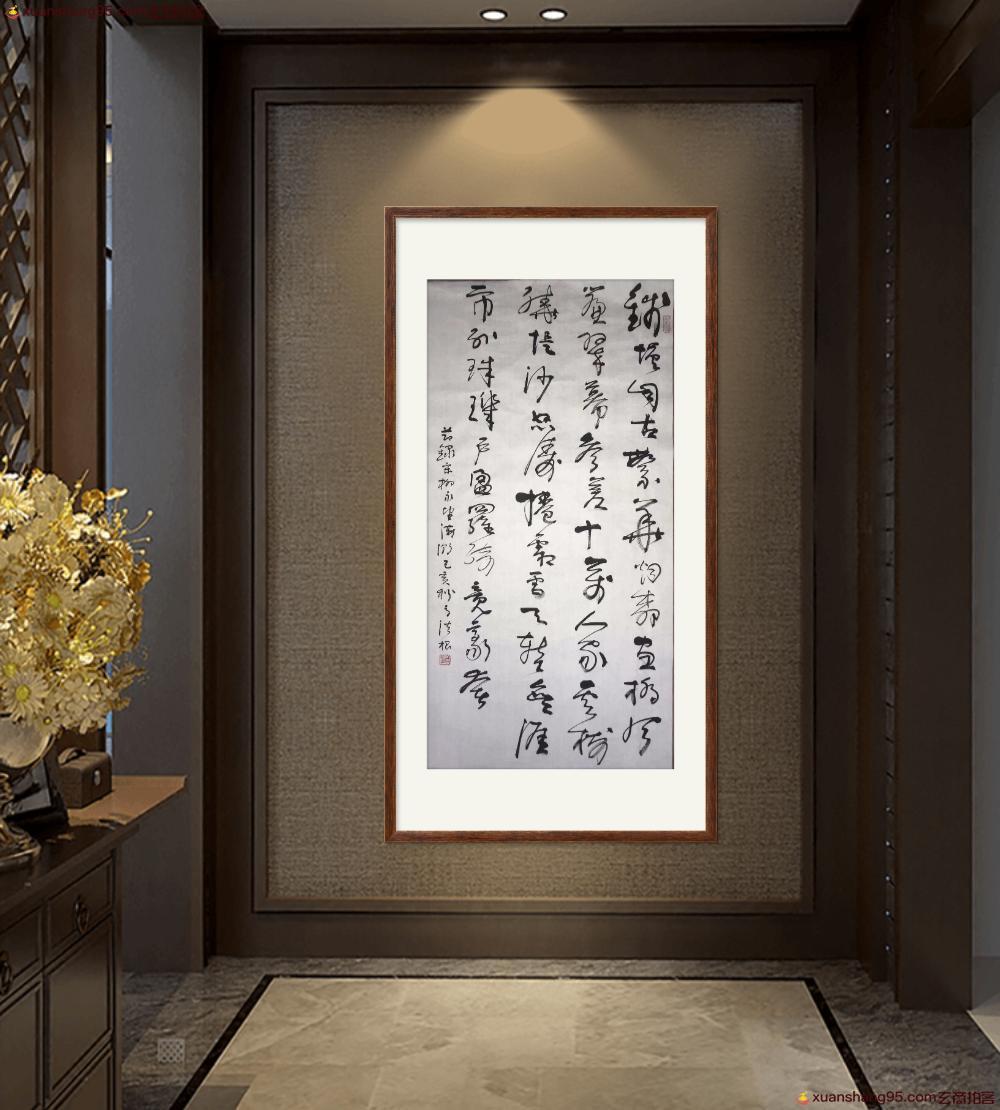 xuanshang95.com玄商拍客
錢塘自古繁華烟柳畫橋風
簾翠幕參差十萬人家雲樹
繞堤沙怒濤捲霜雪天塹無涯
市列珠璣戶盈羅綺競豪奢
錄宋柳永望海潮己亥秋月
xuanshang95.com玄商拍客